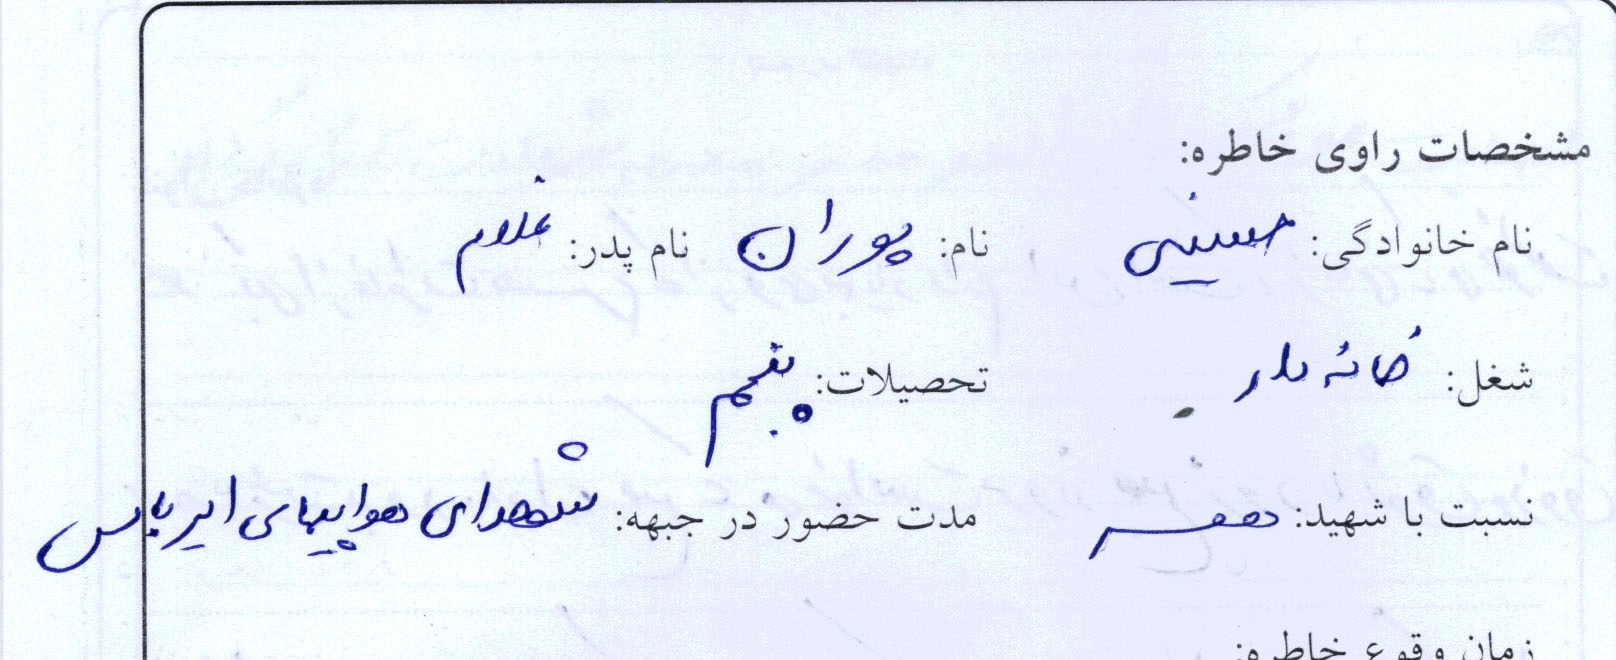 مشخصات راوی خاطره:
نام خانوادگی: حسینی نام: پوران نام پدر: غلام
شغل: خانه دار تحصیلات: پنجم
نسبت با شهید: همسر مدت حضور در جبهه: شهدای هواپیمای ایرباس
زمان وقوع خاطره: